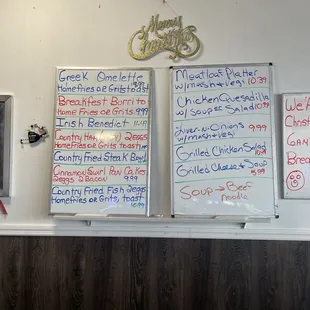 Merry
Christmas
Greek Omelette
Homefries or Grits toast
Breakfast Burrito
Homefries or Grits 9.99
Irish Benedict 11.99
Country Ham 2 eggs
Homefries or Grits toast
Country Fried Steak
Cinnamon Swirl Pan Cakes
2 eggs 2 Bacon 9.99
Country Fried Fish 2 eggs
Homefries or Grits, toast
10.99
Meatloaf Platter
w/ mash & veg 10.39
Chicken Quesadilla
w/ Soup or Salad 10.99
Liver-N-Onions 9.99
w/ mash & veg
Grilled Chicken Salad
10.99
Grilled Cheese & Soup
Soup → Beef
Noodle
We
Chris
Break